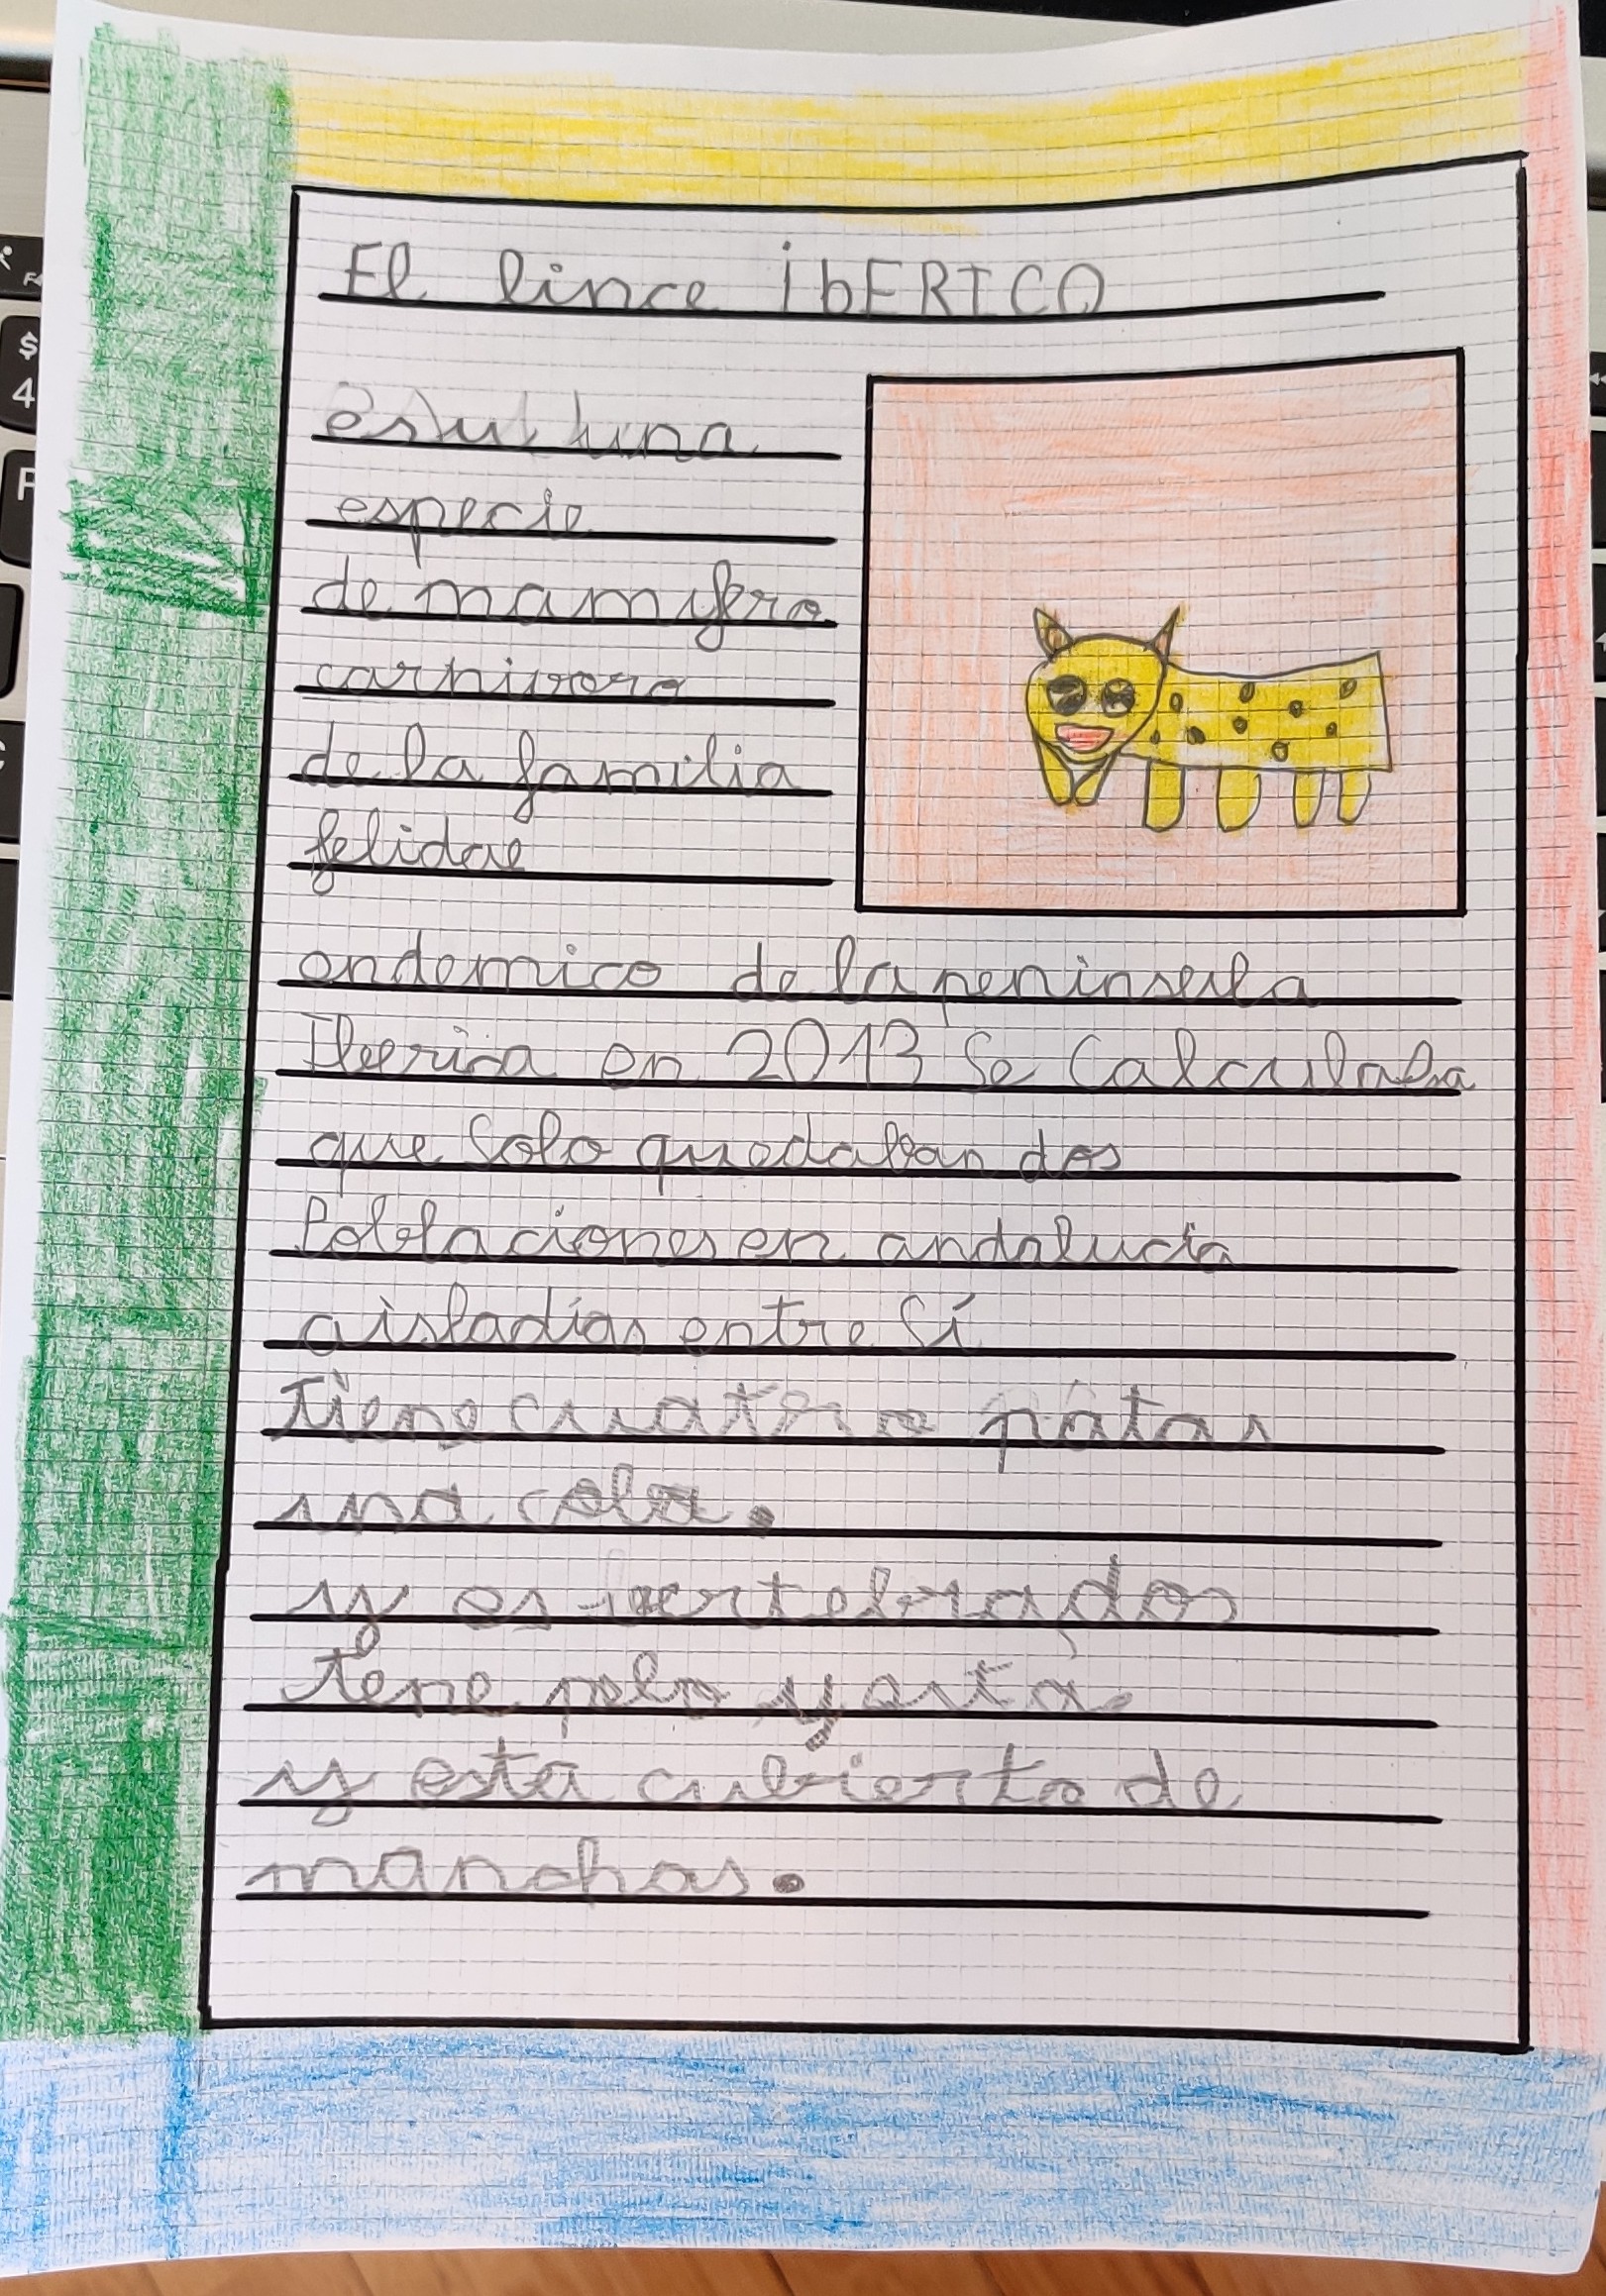 El lince IbERICO
es una
especie
de mamifero
carnivoro
de la familia
felidae
endemico de la peninsula
Iberica en 2013 Se Calculaba
que Solo quedaban dos
Poblaciones en andalucía
aisladías entre Sí
Tiene cuatro patas
una cola.
y es vertebrados
tene pelo y está.
y está cubierto de
manchas.